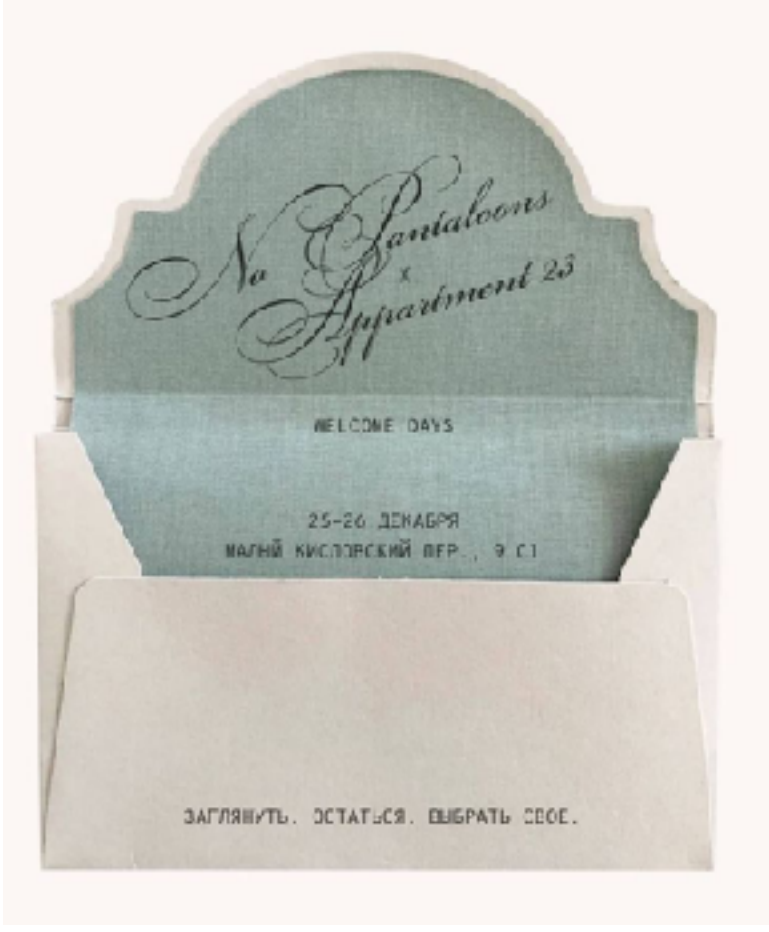 No Pantaloons
x
Appartment 23
WELCOME DAYS
25-26 ДЕКАБРЯ
МАЛЫЙ КИСЛОВСКИЙ ПЕР., 9 С1
ЗАГЛЯНУТЬ. ОСТАТЬСЯ. ВЫБРАТЬ СВОЕ.